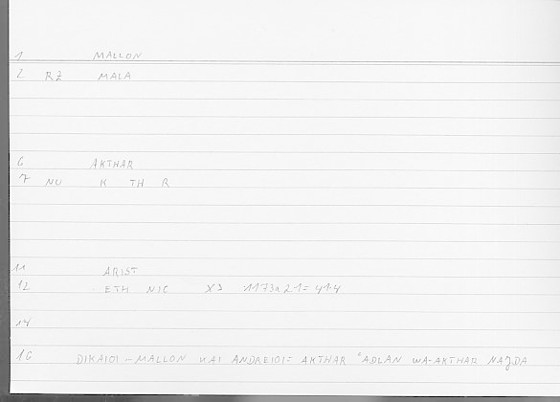 1 MALLON
2 RZ MALA
6 AKTHAR
7 NU K TH R
11 ARIST
12 ETH NIC X3 1173a21= 414
14
16 DIKAIOI – MALLON KAI ANDREIOI= AKTHAR ʿADLAN WA-AKTHAR NAJDA